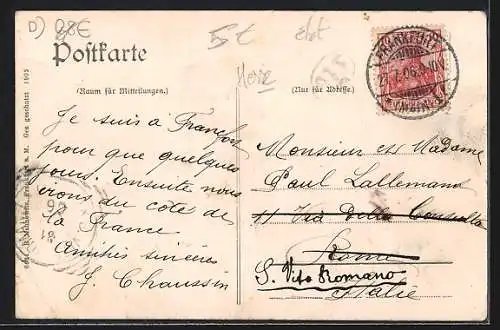 D) 08€
5€
Postkarte
(Raum für Mitteilungen.)
(Nur für Adresse.)
FRANKFURT
(MAIN)
Je suis à Francfort
pour que quelques
jours. Ensuite nous
irons du côté de
la France
Amitiés sincères
J. Chaussin
Monsieur et Madame
Paul Lallemand
11 Via Della Consulta
Rome
S. Vito Romano
Italie
Ges. geschützt 1905